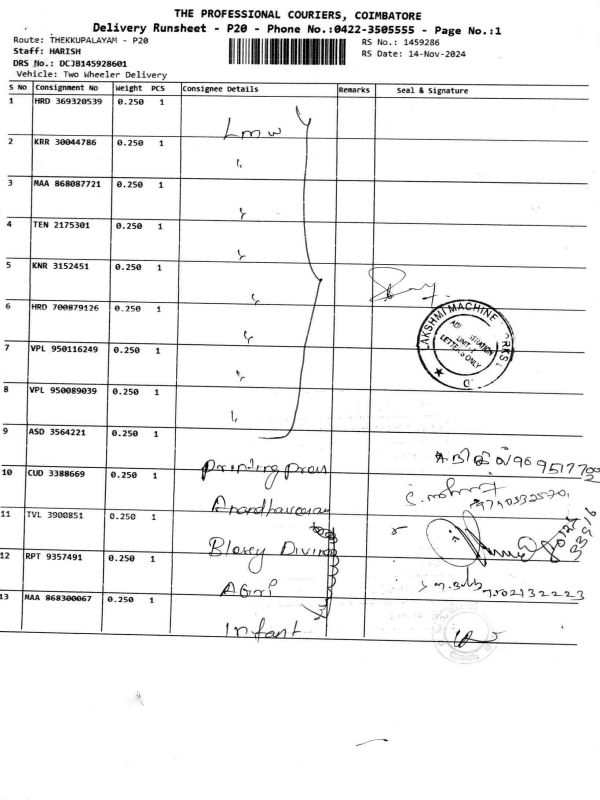 THE PROFESSIONAL COURIERS, COIMBATORE
Delivery Runsheet - P20 - Phone No.:0422-3505555 - Page No.:1
Route: THEKKUPALAYAM - P20
RS No.: 1459286
Staff: HARISH
RS Date: 14-Nov-2024
DRS No.: DCJB145928601
Vehicle: Two Wheeler Delivery
S No Consignment No Weight PCS Consignee Details Remarks Seal & Signature
1 HRD 369320539 0.250 1
Lmw
2 KRR 30044786 0.250 1
3 MAA 868087721 0.250 1
4 TEN 2175301 0.250 1
5 KNR 3152451 0.250 1
6 HRD 700879126 0.250 1
LAKSHMI MACHINE
LETTERS ONLY
7 VPL 950116249 0.250 1
8 VPL 950089039 0.250 1
9 ASD 3564221 0.250 1
Printing
10 CUD 3388669 0.250 1
11 TVL 3900851 0.250 1
12 RPT 9357491 0.250 1
Agri
13 MAA 868300067 0.250 1
Infant